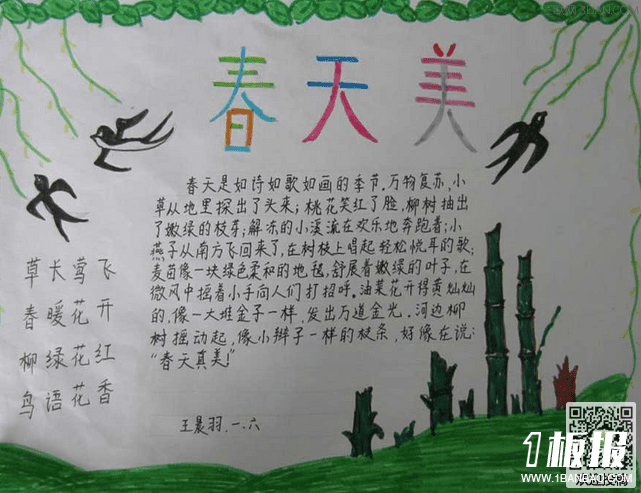 春天美
春天是如诗如歌如画的季节,万物复苏,小
草从地里探出了头来;桃花笑红了脸,柳树抽出
了嫩绿的枝芽;解冻的小溪流在欢乐地奔跑着;小
燕子从南方飞回来了,在树枝上唱起轻松悦耳的歌;
麦苗像一块绿色柔和的地毯,舒展着嫩绿的叶子,在
微风中摇着小手向人们打招呼。油菜花开得黄灿灿
的,像一大堆金子一样,发出万道金光。河边柳
树摇动起,像小辫子一样的枝条,好像在说:
“春天真美!”
王晨羽.一.六
草长莺飞
春暖花开
柳绿花红
鸟语花香
1板报
WWW.1BANBAO.COM